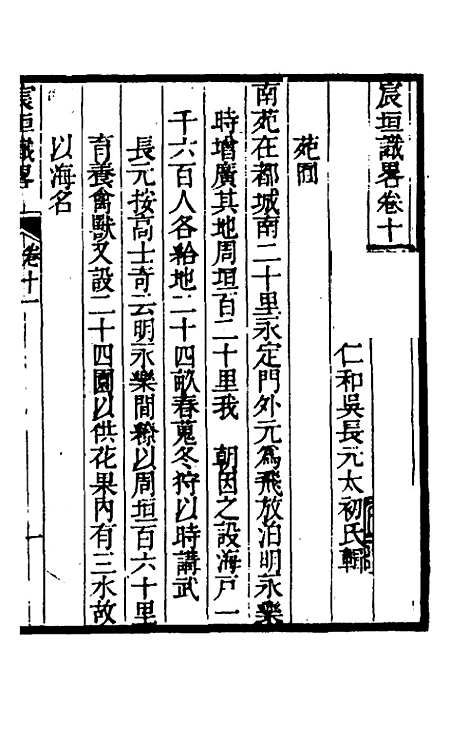 宸垣識畧卷十
仁和吳長元太初氏輯
苑囿
南苑在都城南二十里永定門外元為飛放泊明永樂
時增廣其地周垣百二十里我　朝因之設海戸一
千六百人各給地二十四畝春蒐冬狩以時講武
長元按高士奇云明永樂間繚以周垣百六十里
育養禽獸又設二十四園以供花果內有三水故
以海名
宸垣識畧
卷十一
一